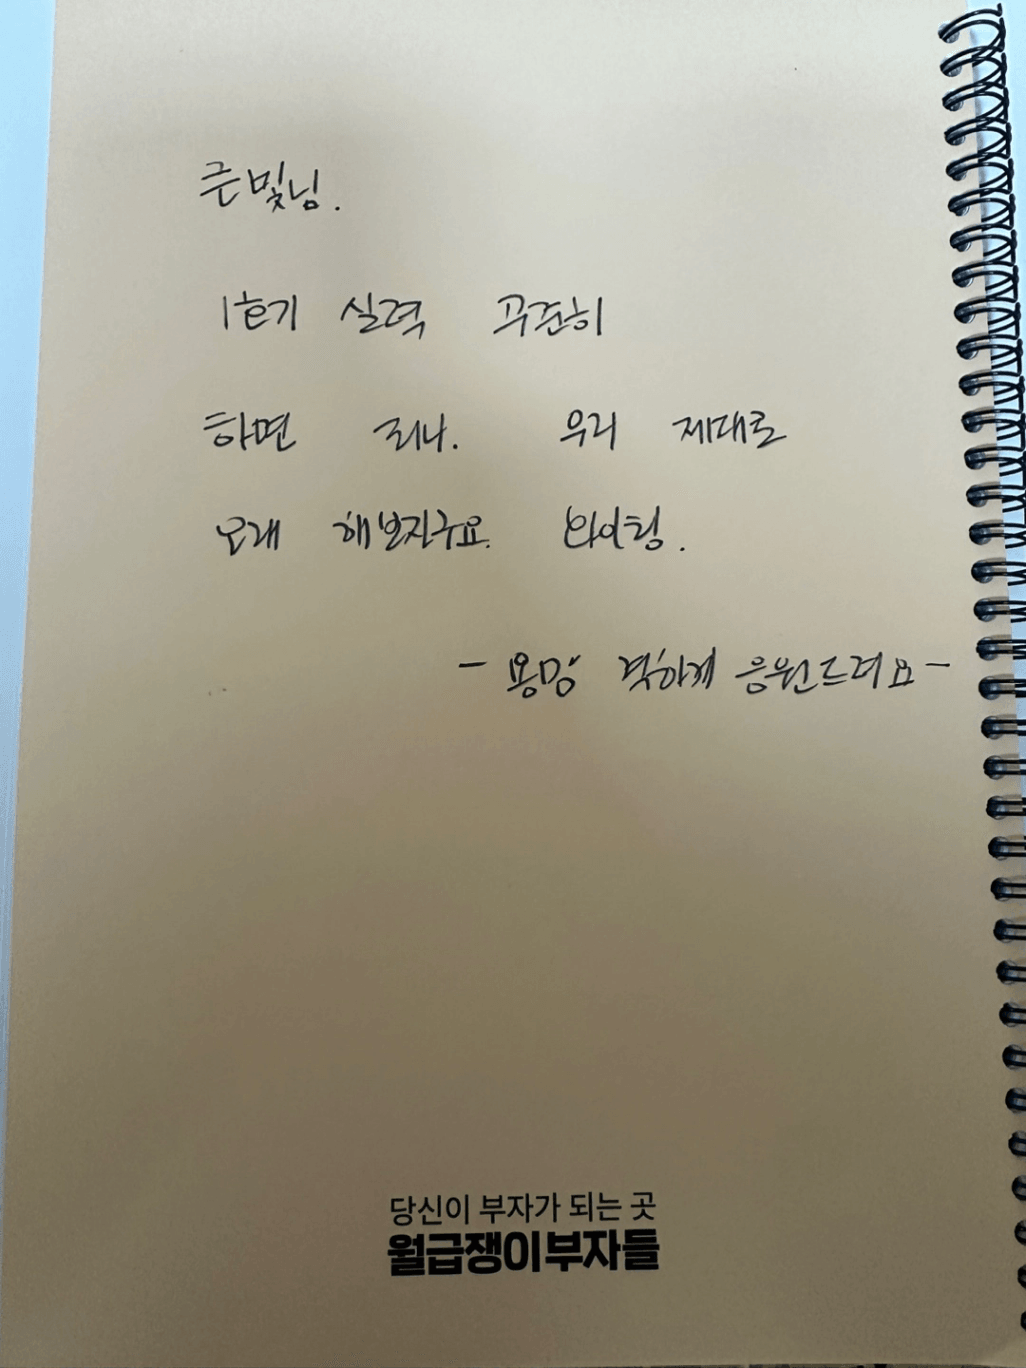 큰빛님.
1호기 실력 꾸준히
하면 되나. 우리 제대로
오래 해보자구요. 화이팅.
- 용맘 격하게 응원드려요 -
당신이 부자가 되는 곳
월급쟁이부자들